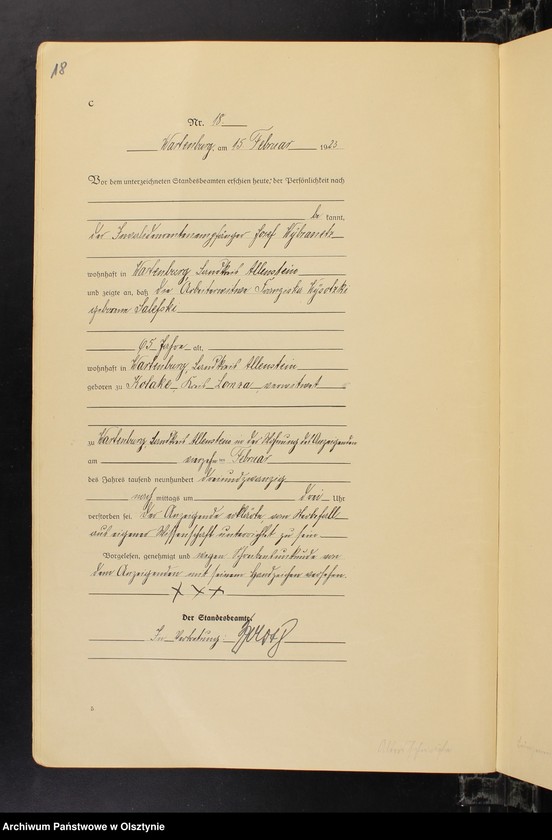 18
C
Nr. 18
Wartenburg, am 15 Februar 1923
Vor dem unterzeichneten Standesbeamten erschien heute, der Persönlichkeit nach
be kannt,
der Invalidenrentenempfänger Josef
wohnhaft in Wartenburg, Landkreis Allenstein
und zeigte an, daß die Arbeiterwitwe Franziska
geborene Salefski
65 Jahre alt,
wohnhaft in Wartenburg, Landkreis Allenstein
geboren zu Kolako, Kreis Lomza, verwitwet
zu Wartenburg, Landkreis Allenstein in der Wohnung des Anzeigenden
am vierzehnten Februar
des Jahres tausend neunhundert dreiundzwanzig
nach mittags um drei Uhr
verstorben sei. Der Anzeigende erklärte, vom Sterbefalle
aus eigener Wissenschaft unterrichtet zu sein
Vorgelesen, genehmigt und wegen Schreibensunkunde von
dem Anzeigenden mit seinem Handzeichen versehen.
x x x
Der Standesbeamte.
In Vertretung:
5
Archiwum Państwowe w Olsztynie